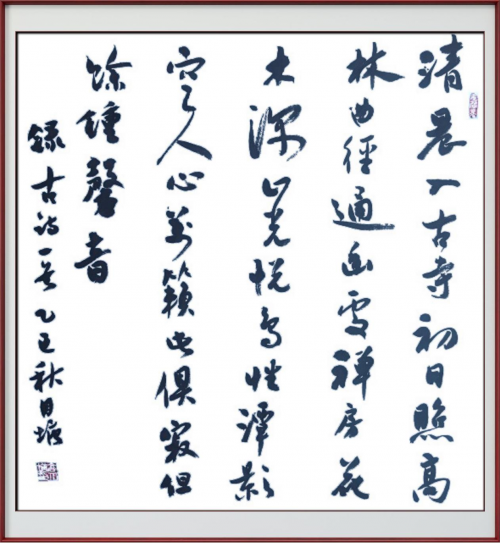 清晨入古寺初日照高
林曲徑通幽處禅房花
木深山光悦鸟性潭影
空人心萬籟此俱寂但
馀鍾磬音
録古诗一首 乙 秋